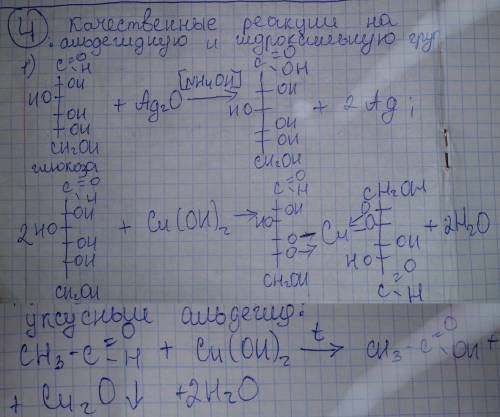 4. Качественные реакции на
альдегидную и гидроксильную груп
1)
C=O H
OH
HO
OH
OH
CH₂OH
глюкоза
+ Ag₂O [NH₄OH] →
C=O OH
OH
HO
OH
OH
CH₂OH
+ 2Ag↓
2
C=O H
OH
HO
OH
OH
CH₂OH
+ Cu(OH)₂ →
C=O H
OH
HO
O
O
CH₂OH
Cu
CH₂OH
O
O
OH
HO
C=O H
+ 2H₂O
уксусный альдегид:
CH₃-C=O H + Cu(OH)₂ t→ CH₃-C=O OH +
+ Cu₂O↓ +2H₂O